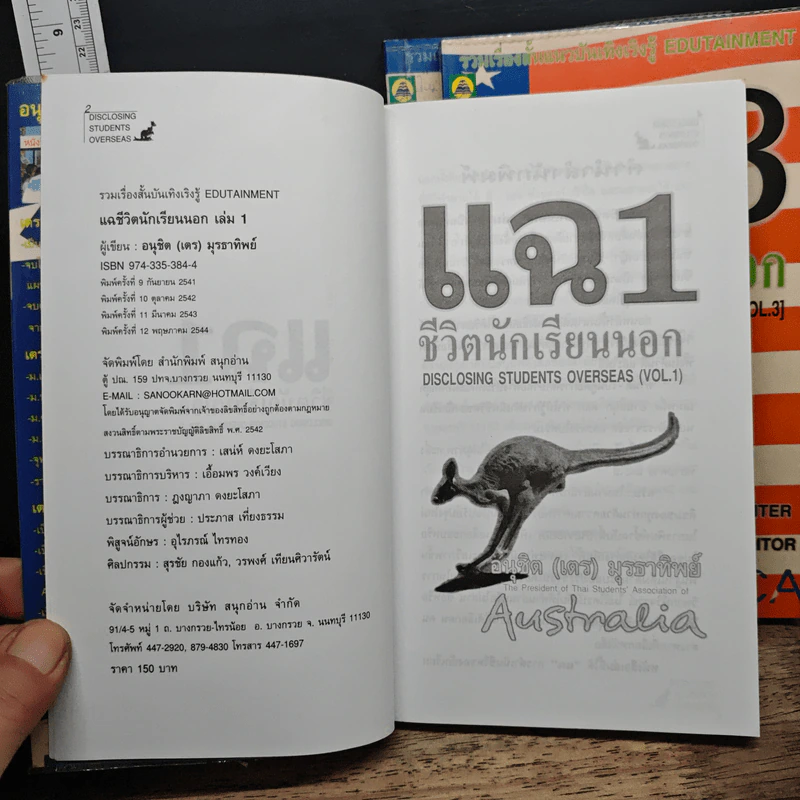 2
DISCLOSING
STUDENTS
OVERSEAS
รวมเรื่องสั้นบันเทิงเริงรู้ EDUTAINMENT
แฉชีวิตนักเรียนนอก เล่ม 1
ผู้เขียน : อนุชิต (เตร) มุรธาทิพย์
ISBN 974-335-384-4
พิมพ์ครั้งที่ 9 กันยายน 2541
พิมพ์ครั้งที่ 10 ตุลาคม 2542
พิมพ์ครั้งที่ 11 มีนาคม 2543
พิมพ์ครั้งที่ 12 พฤษภาคม 2544
จัดพิมพ์โดย สำนักพิมพ์ สนุกอ่าน
ตู้ ปณ. 159 ปทจ.บางกรวย นนทบุรี 11130
E-MAIL : SANOOKARN@HOTMAIL.COM
โดยได้รับอนุญาตจัดพิมพ์จากเจ้าของลิขสิทธิ์อย่างถูกต้องตามกฎหมาย
สงวนสิทธิ์ตามพระราชบัญญัติลิขสิทธิ์ พ.ศ. 2542
บรรณาธิการอำนวยการ : เสน่ห์ ดงยะโสภา
บรรณาธิการบริหาร : เอื้อมพร วงค์เวียง
บรรณาธิการ : ฎงญาภา ดงยะโสภา
บรรณาธิการผู้ช่วย : ประภาส เที่ยงธรรม
พิสูจน์อักษร : อุไรภรณ์ ไทรทอง
ศิลปกรรม : สุรชัย กองแก้ว, วรพงศ์ เทียนศิวารัตน์
จัดจำหน่ายโดย บริษัท สนุกอ่าน จำกัด
91/4-5 หมู่ 1 ถ. บางกรวย-ไทรน้อย อ. บางกรวย จ. นนทบุรี 11130
โทรศัพท์ 447-2920, 879-4830 โทรสาร 447-1697
ราคา 150 บาท
แฉ 1
ชีวิตนักเรียนนอก
DISCLOSING STUDENTS OVERSEAS (VOL.1)
อนุชิต (เตร) มุรธาทิพย์
The President of Thai Students' Association of
Australia
รวมเรื่องสั้นแนวบันเทิงเริงรู้ EDUTAINMENT
3
VOL.3]
9
23
22